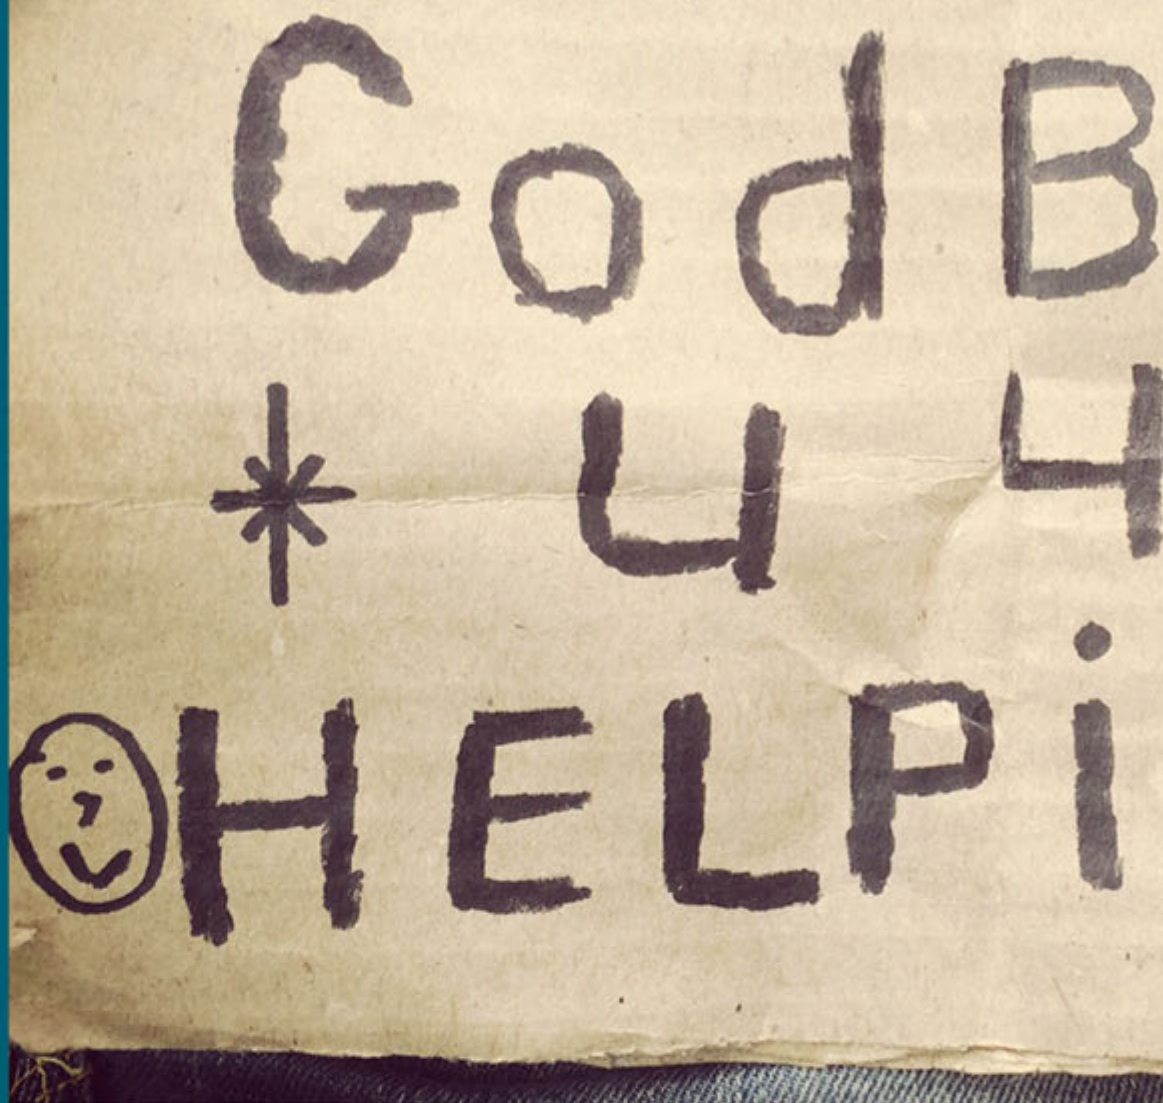 God B
* U 4
HELPi